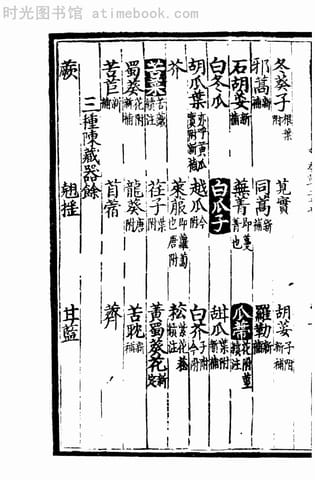 时光图书馆 - atimebook.com
冬葵子 根葉附 莧實 胡荽 子附新補
邪蒿 新補 同蒿 新補 羅勒 新補
石胡荽 新補 蕪菁 即蔓菁也 瓜蔕 花附 續注
白冬瓜 白瓜子 甜瓜 葉附新補
胡瓜葉 實附亦呼黃瓜新補 越瓜 今附 白芥 子附今附
芥 萊菔 即蘿蔔也唐附 菘 續注
苦菜 續注 荏子 葉附 黃蜀葵花 新定
蜀葵 花附新補 龍葵 唐附 苦耽 新補
苦苣 新補 苜蓿 薺
三種陳藏器餘
蕨 翹搖 甘藍